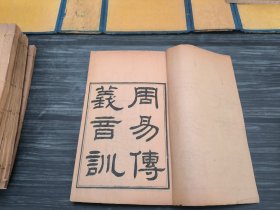 周易傳
義音訓